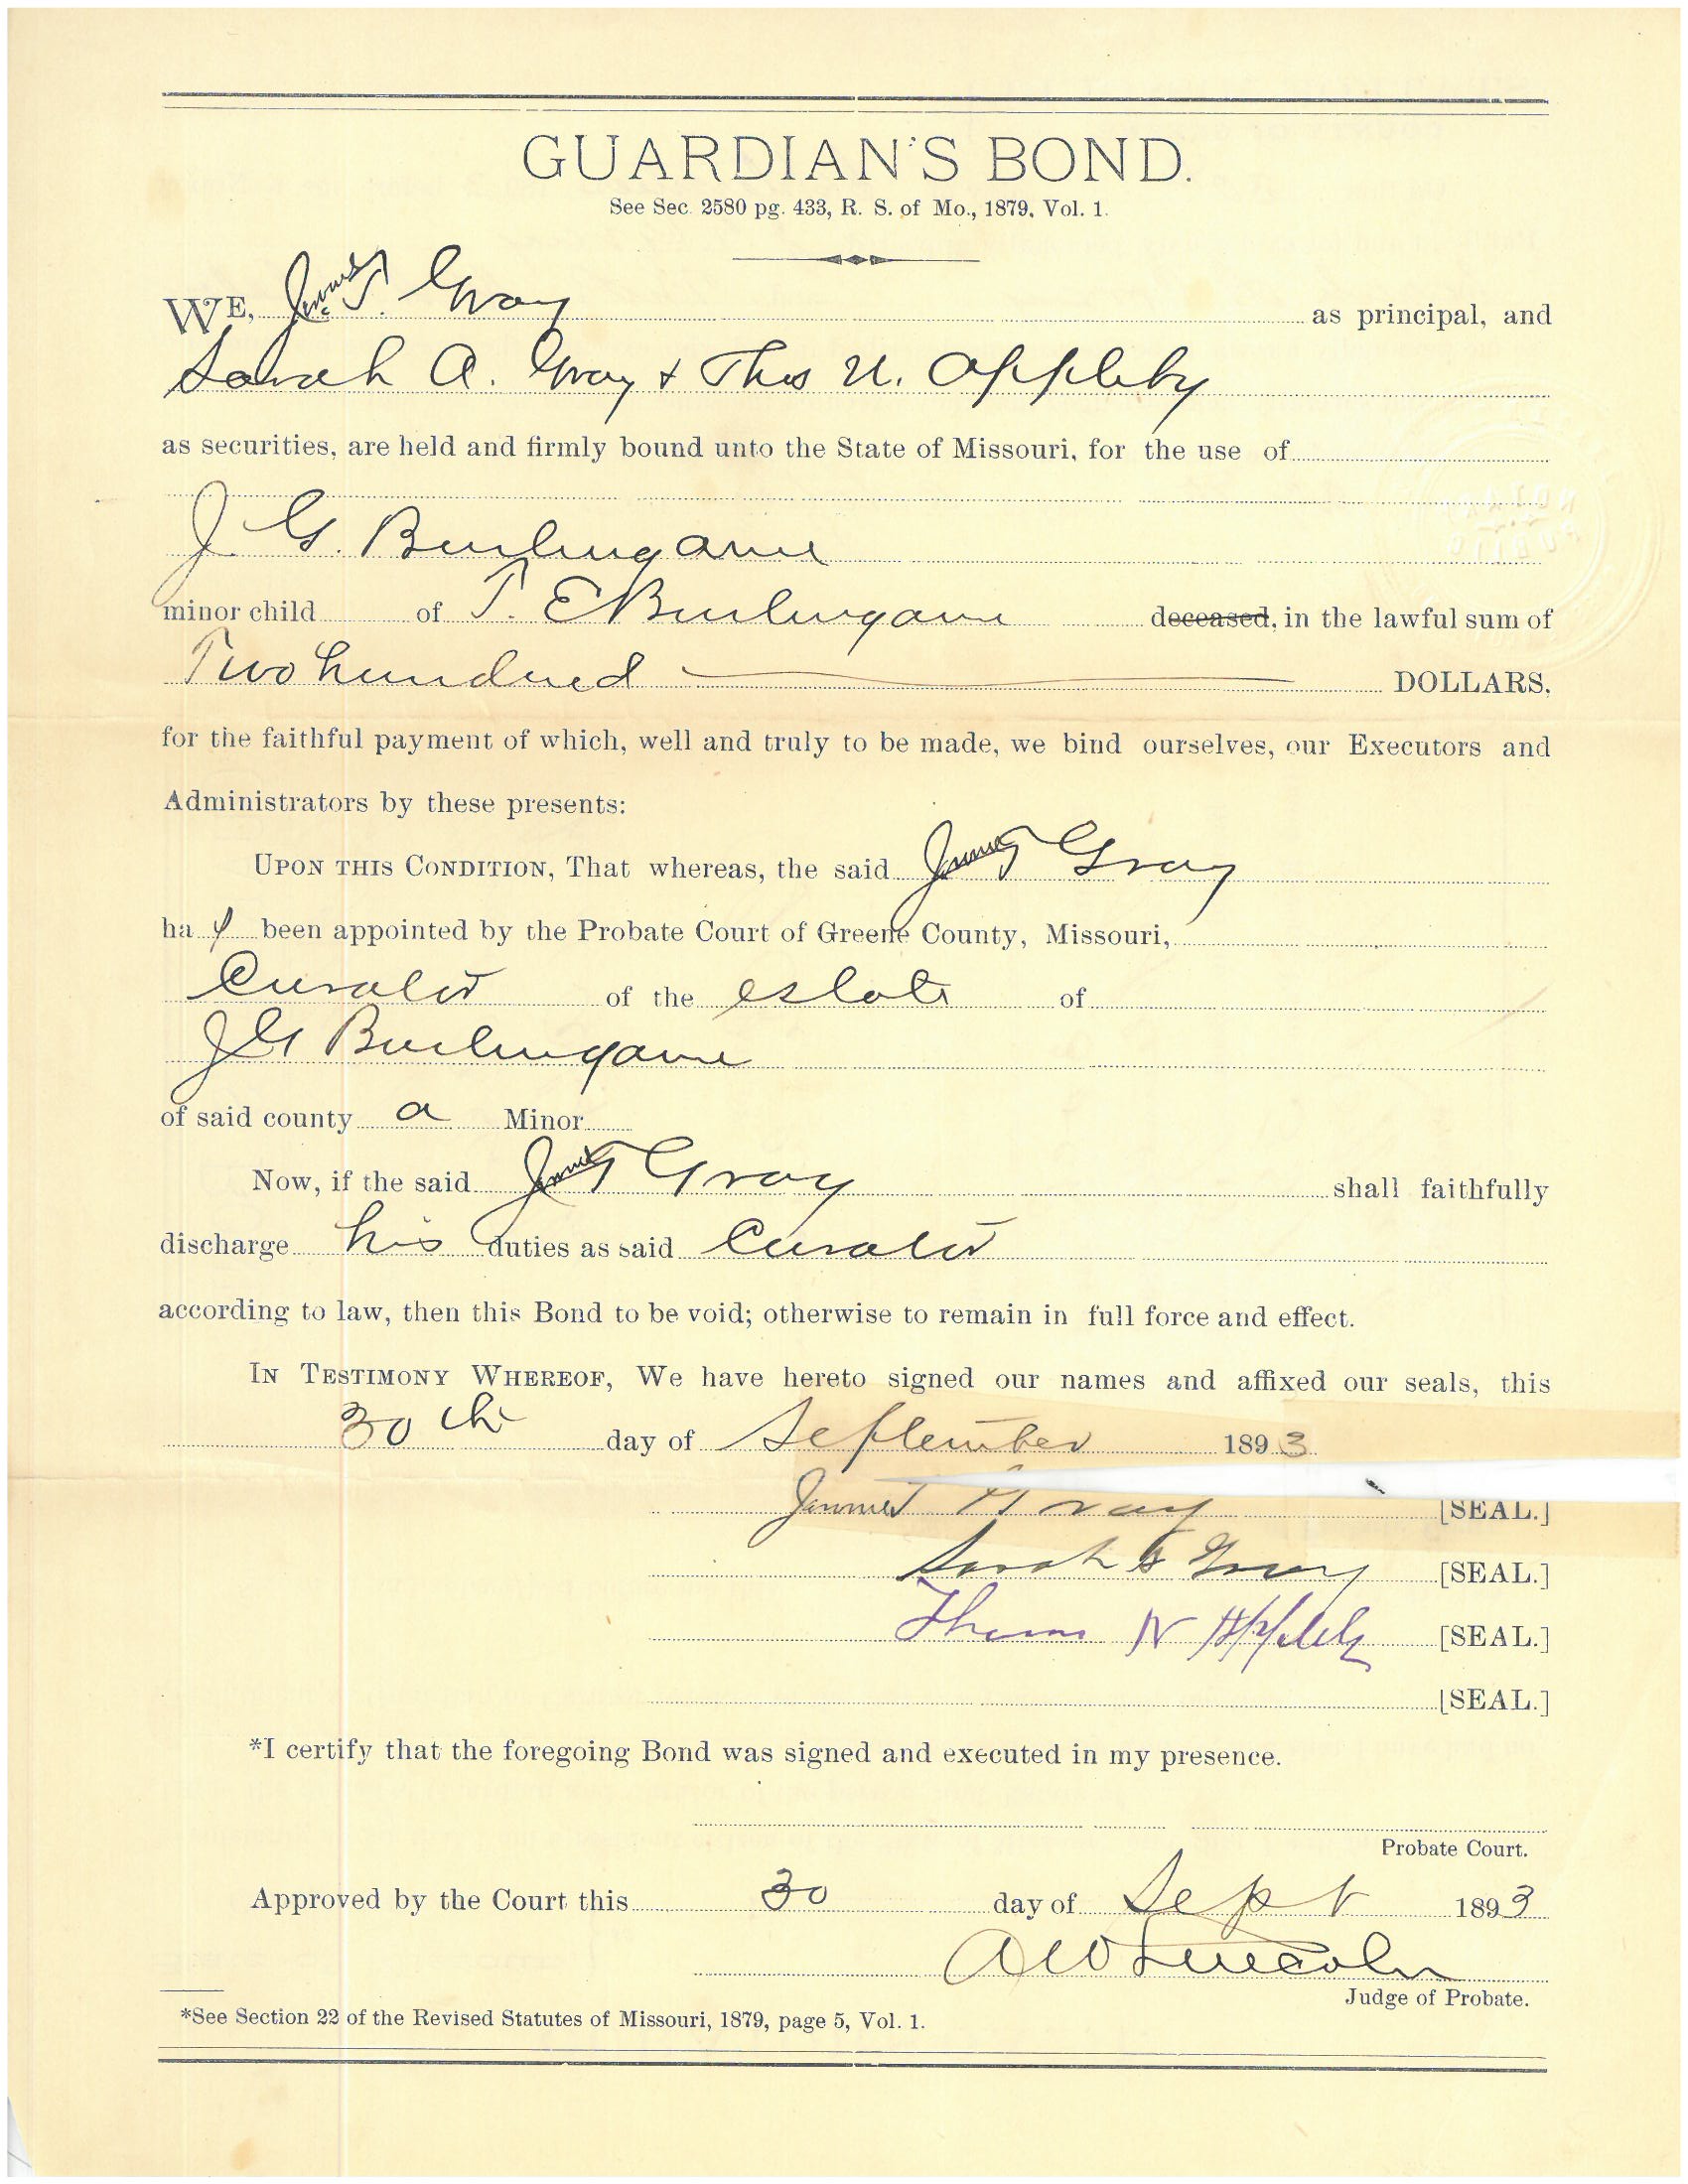 GUARDIAN'S BOND.
See Sec. 2580 pg. 433, R. S. of Mo., 1879, Vol. 1.
WE, Jimmie T. Gray as principal, and
Sarah A. Gray & Thos N. Appleby
as securities, are held and firmly bound unto the State of Missouri, for the use of
J. G. Burlingame
minor child of T. E Burlingame deceased, in the lawful sum of
Two hundred DOLLARS,
for the faithful payment of which, well and truly to be made, we bind ourselves, our Executors and
Administrators by these presents:
UPON THIS CONDITION, That whereas, the said Jimmie T Gray
ha been appointed by the Probate Court of Greene County, Missouri,
Curator of the estate of
J G Burlingame
of said county a Minor
Now, if the said Jimmie T Gray shall faithfully
discharge his duties as said Curator
according to law, then this Bond to be void; otherwise to remain in full force and effect.
IN TESTIMONY WHEREOF, We have hereto signed our names and affixed our seals, this
30th day of September 1893
Jimmie T Gray [SEAL.]
Sarah A Gray [SEAL.]
Thomas N Appleby [SEAL.]
[SEAL.]
*I certify that the foregoing Bond was signed and executed in my presence.
Probate Court.
Approved by the Court this 30 day of Sept 1893
A W Lincoln
Judge of Probate.
*See Section 22 of the Revised Statutes of Missouri, 1879, page 5, Vol. 1.